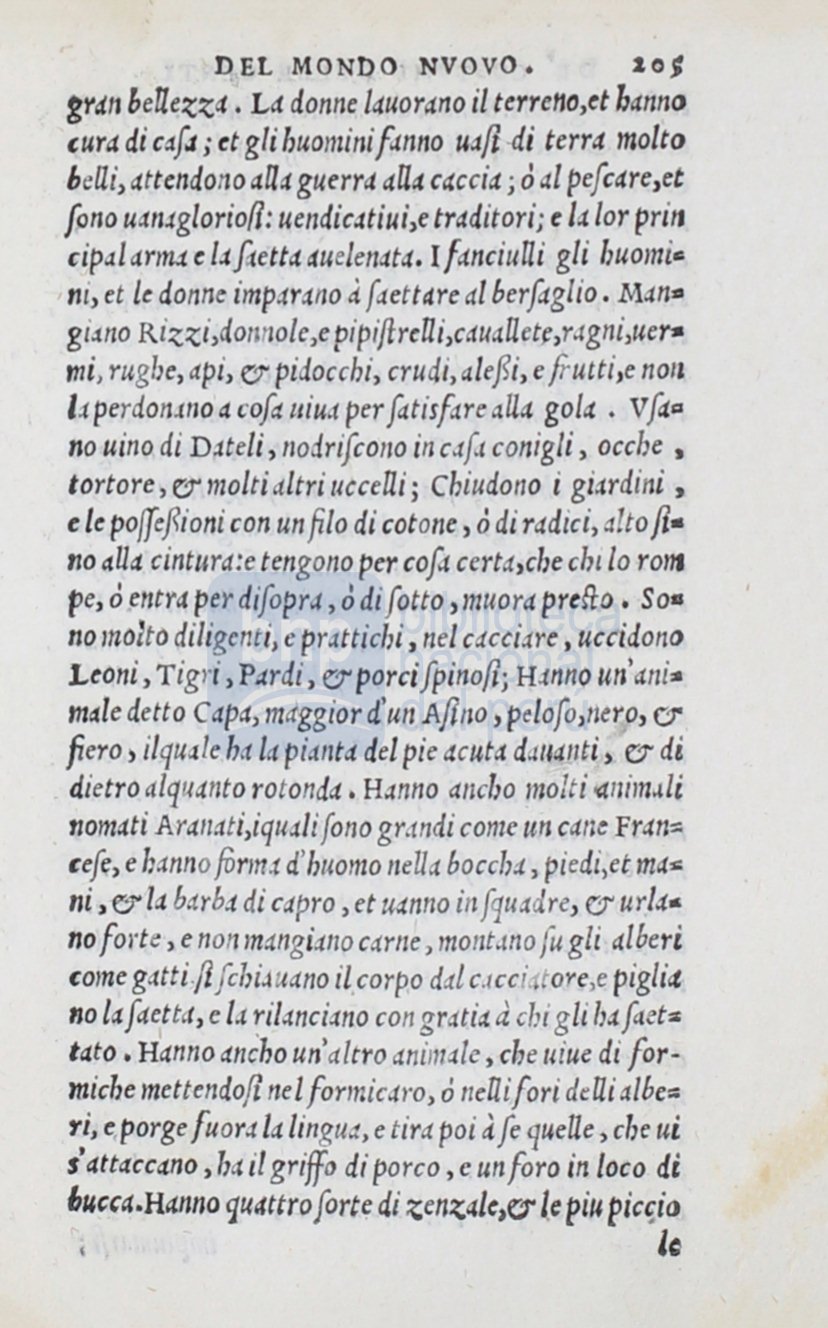 DEL MONDO NVOVO. 205
gran bellezza. La donne lauorano il terreno, et hanno
cura di casa; et gli huomini fanno uasi di terra molto
belli, attendono alla guerra alla caccia; ò al pescare, et
sono uanagloriosi: uendicatiui, e traditori; e la lor prin
cipal arma e la saetta auelenata. I fanciulli gli huomi=
ni, et le donne imparano à saettare al bersaglio. Man=
giano Rizzi, donnole, e pipistrelli, cauallete, ragni, uer=
mi, rughe, api, & pidocchi, crudi, alessi, e frutti, e non
la perdonano a cosa uiua per satisfare alla gola. Vsa=
no uino di Dateli, nodriscono in casa conigli, ocche,
tortore, & molti altri uccelli; Chiudono i giardini,
e le possessioni con un filo di cotone, ò di radici, alto si=
no alla cintura: e tengono per cosa certa, che chi lo rom
pe, ò entra per disopra, ò di sotto, muora presto. So=
no molto diligenti, e prattichi, nel cacciare, uccidono
Leoni, Tigri, Pardi, & porci spinosi; Hanno un'ani=
male detto Capa, maggior d'un Asino, peloso, nero, &
fiero, ilquale ha la pianta del pie acuta dauanti, & di
dietro alquanto rotonda. Hanno ancho molti animali
nomati Aranati, iquali sono grandi come un cane Fran=
cese, e hanno forma d'huomo nella boccha, piedi, et ma=
ni, & la barba di capro, et uanno in squadre, & urla=
no forte, e non mangiano carne, montano su gli alberi
come gatti si schiauano il corpo dal cacciatore, e piglia
no la saetta, e la rilanciano con gratia à chi gli ha saet=
tato. Hanno ancho un'altro animale, che uiue di for-
miche mettendosi nel formicaro, ó nelli fori delli albe=
ri, e porge fuora la lingua, e tira poi à se quelle, che ui
s'attaccano, ha il griffo di porco, e un foro in loco di
bucca. Hanno quattro sorte di zenzale, & le piu piccio
le
bnp biblioteca nacional del perú